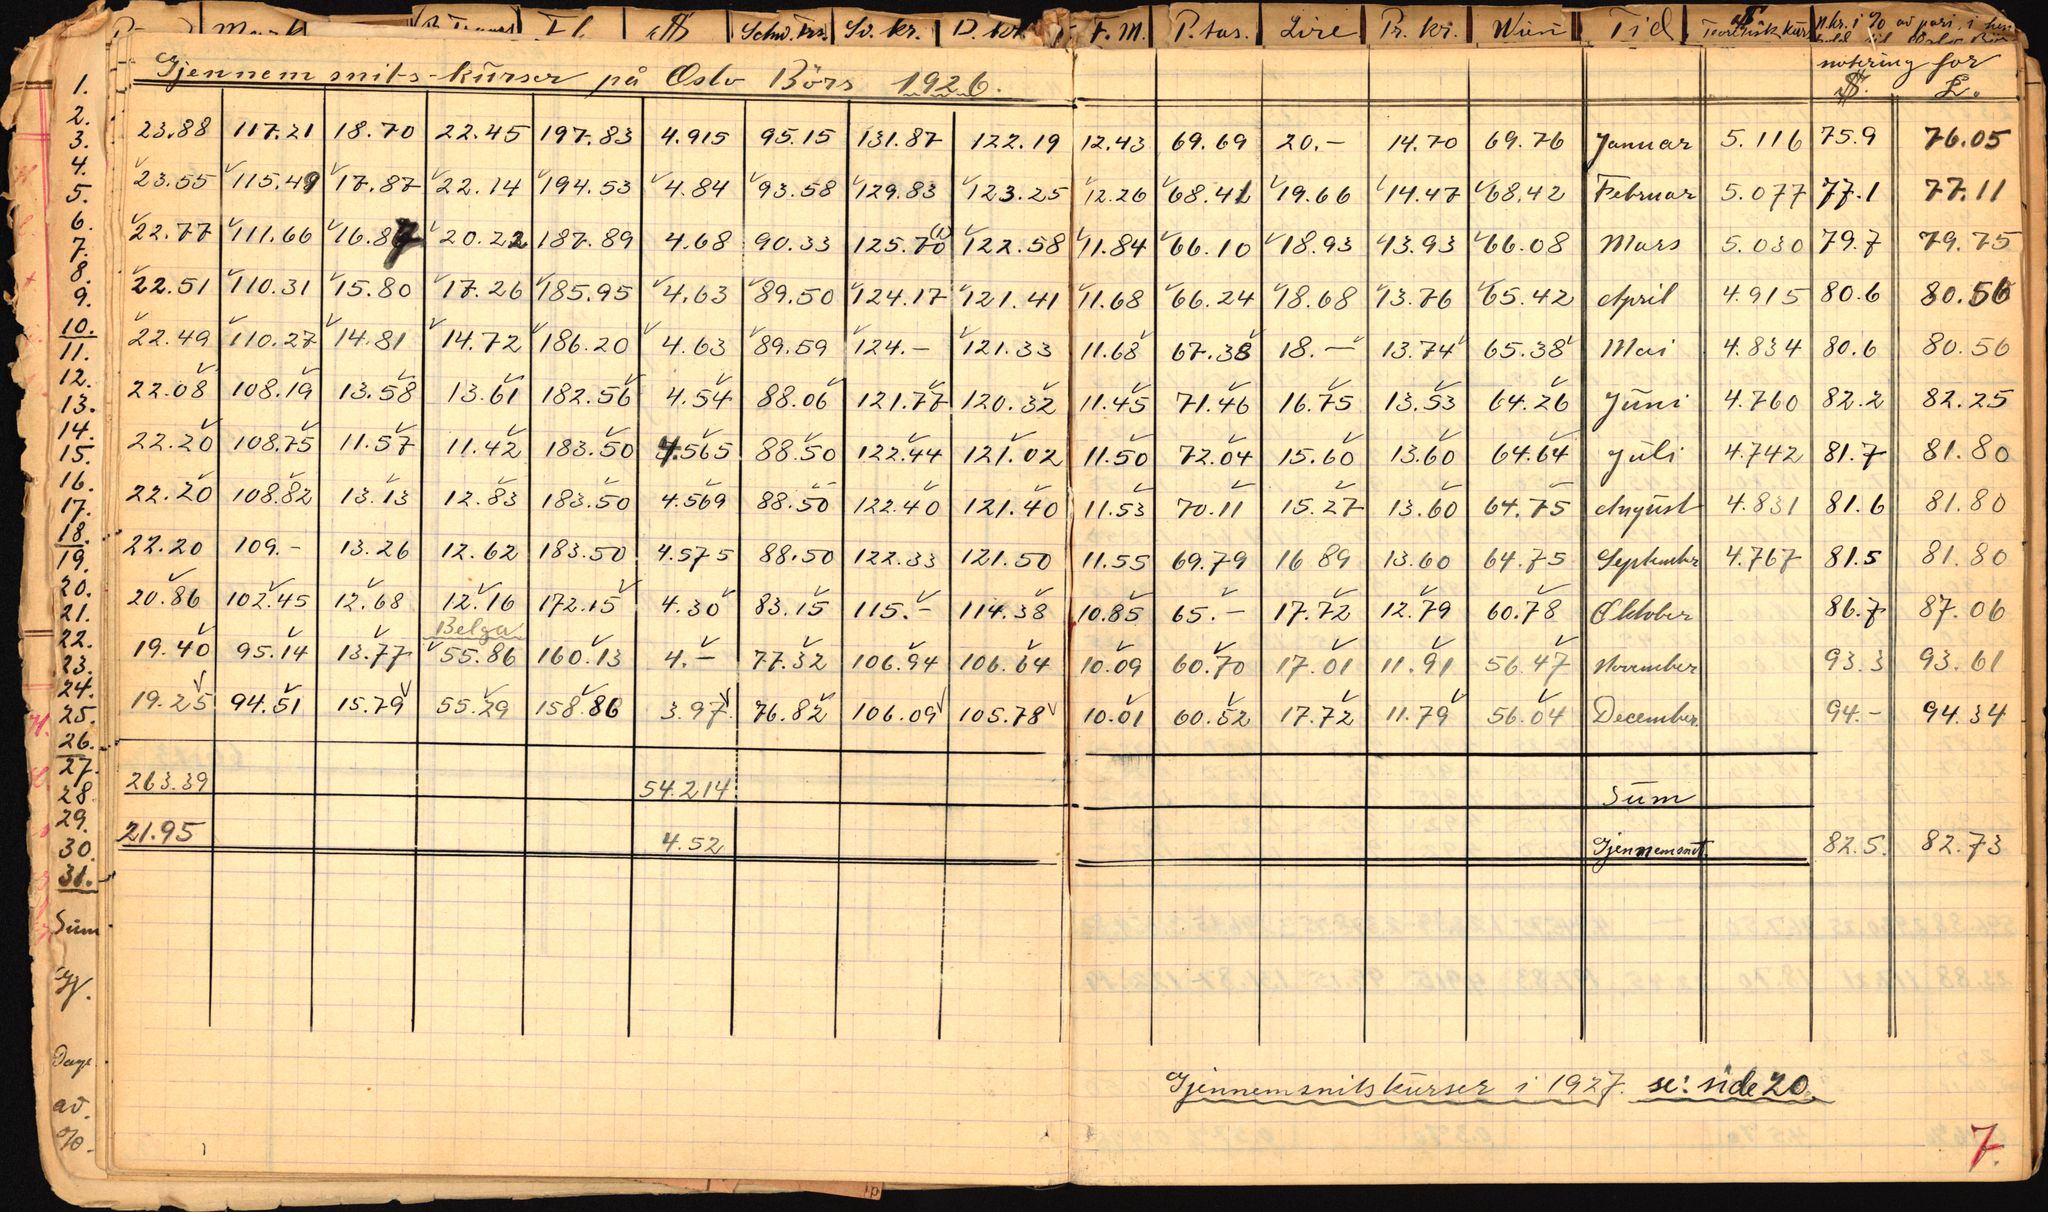 Mark Fl. $ Schw. frs. Sv. kr. D. kr. F. M. P.tas. Lire Pr. kr. Wien Tid Teoretisk kurs N kr. i % av pari i
Gjennemsnits-kurser på Oslo Börs 1926. notering for
$. £.
23.88 117.21 18.70 22.45 197.83 4.915 95.15 131.87 122.19 12.43 69.69 20.- 14.70 69.76 Januar 5.116 75.9 76.05
23.55 115.49 17.87 22.14 194.53 4.84 93.58 129.83 123.25 12.26 68.41 19.66 14.47 68.42 Februar 5.077 77.1 77.11
22.77 111.66 16.87 20.22 187.89 4.68 90.33 125.70 122.58 11.84 66.10 18.93 13.93 66.08 Mars 5.030 79.7 79.75
22.51 110.31 15.80 17.26 185.95 4.63 89.50 124.17 121.41 11.68 66.24 18.68 13.76 65.42 April 4.915 80.6 80.56
22.49 110.27 14.81 14.72 186.20 4.63 89.59 124.- 121.33 11.68 67.38 18.- 13.74 65.38 Mai 4.834 80.6 80.56
22.08 108.19 13.58 13.61 182.56 4.54 88.06 121.77 120.32 11.45 71.46 16.75 13.53 64.26 Juni 4.760 82.2 82.25
22.20 108.75 11.57 11.42 183.50 4.565 88.50 122.44 121.02 11.50 72.04 15.60 13.60 64.64 Juli 4.742 81.7 81.80
22.20 108.82 13.13 12.83 183.50 4.569 88.50 122.40 121.40 11.53 70.11 15.27 13.60 64.75 August 4.831 81.6 81.80
22.20 109.- 13.26 12.62 183.50 4.575 88.50 122.33 121.50 11.55 69.79 16 89 13.60 64.75 September 4.767 81.5 81.80
20.86 102.45 12.68 12.16 172.15 4.30 83.15 115.- 114.38 10.85 65.- 17.72 12.79 60.78 Oktober 86.7 87.06
Belga
19.40 95.14 13.77 55.86 160.13 4.- 77.32 106.94 106.64 10.09 60.70 17.01 11.91 56.47 November 93.3 93.61
19.25 94.51 15.79 55.29 158.86 3.97 76.82 106.09 105.78 10.01 60.52 17.72 11.79 56.04 December 94.- 94.34
263.39 54.214 Sum
21.95 4.52 Gjennemsnit. 82.5. 82.73
Gjennemsnitskurser i 1927. se: side 20.
7.
1.
2.
3.
4.
5.
6.
7.
8.
9.
10.
11.
12.
13.
14.
15.
16.
17.
18.
19.
20.
21.
22.
23.
24.
25.
26.
27.
28.
29.
30.
31.
Sum
Gj.
Dage
av.
%.